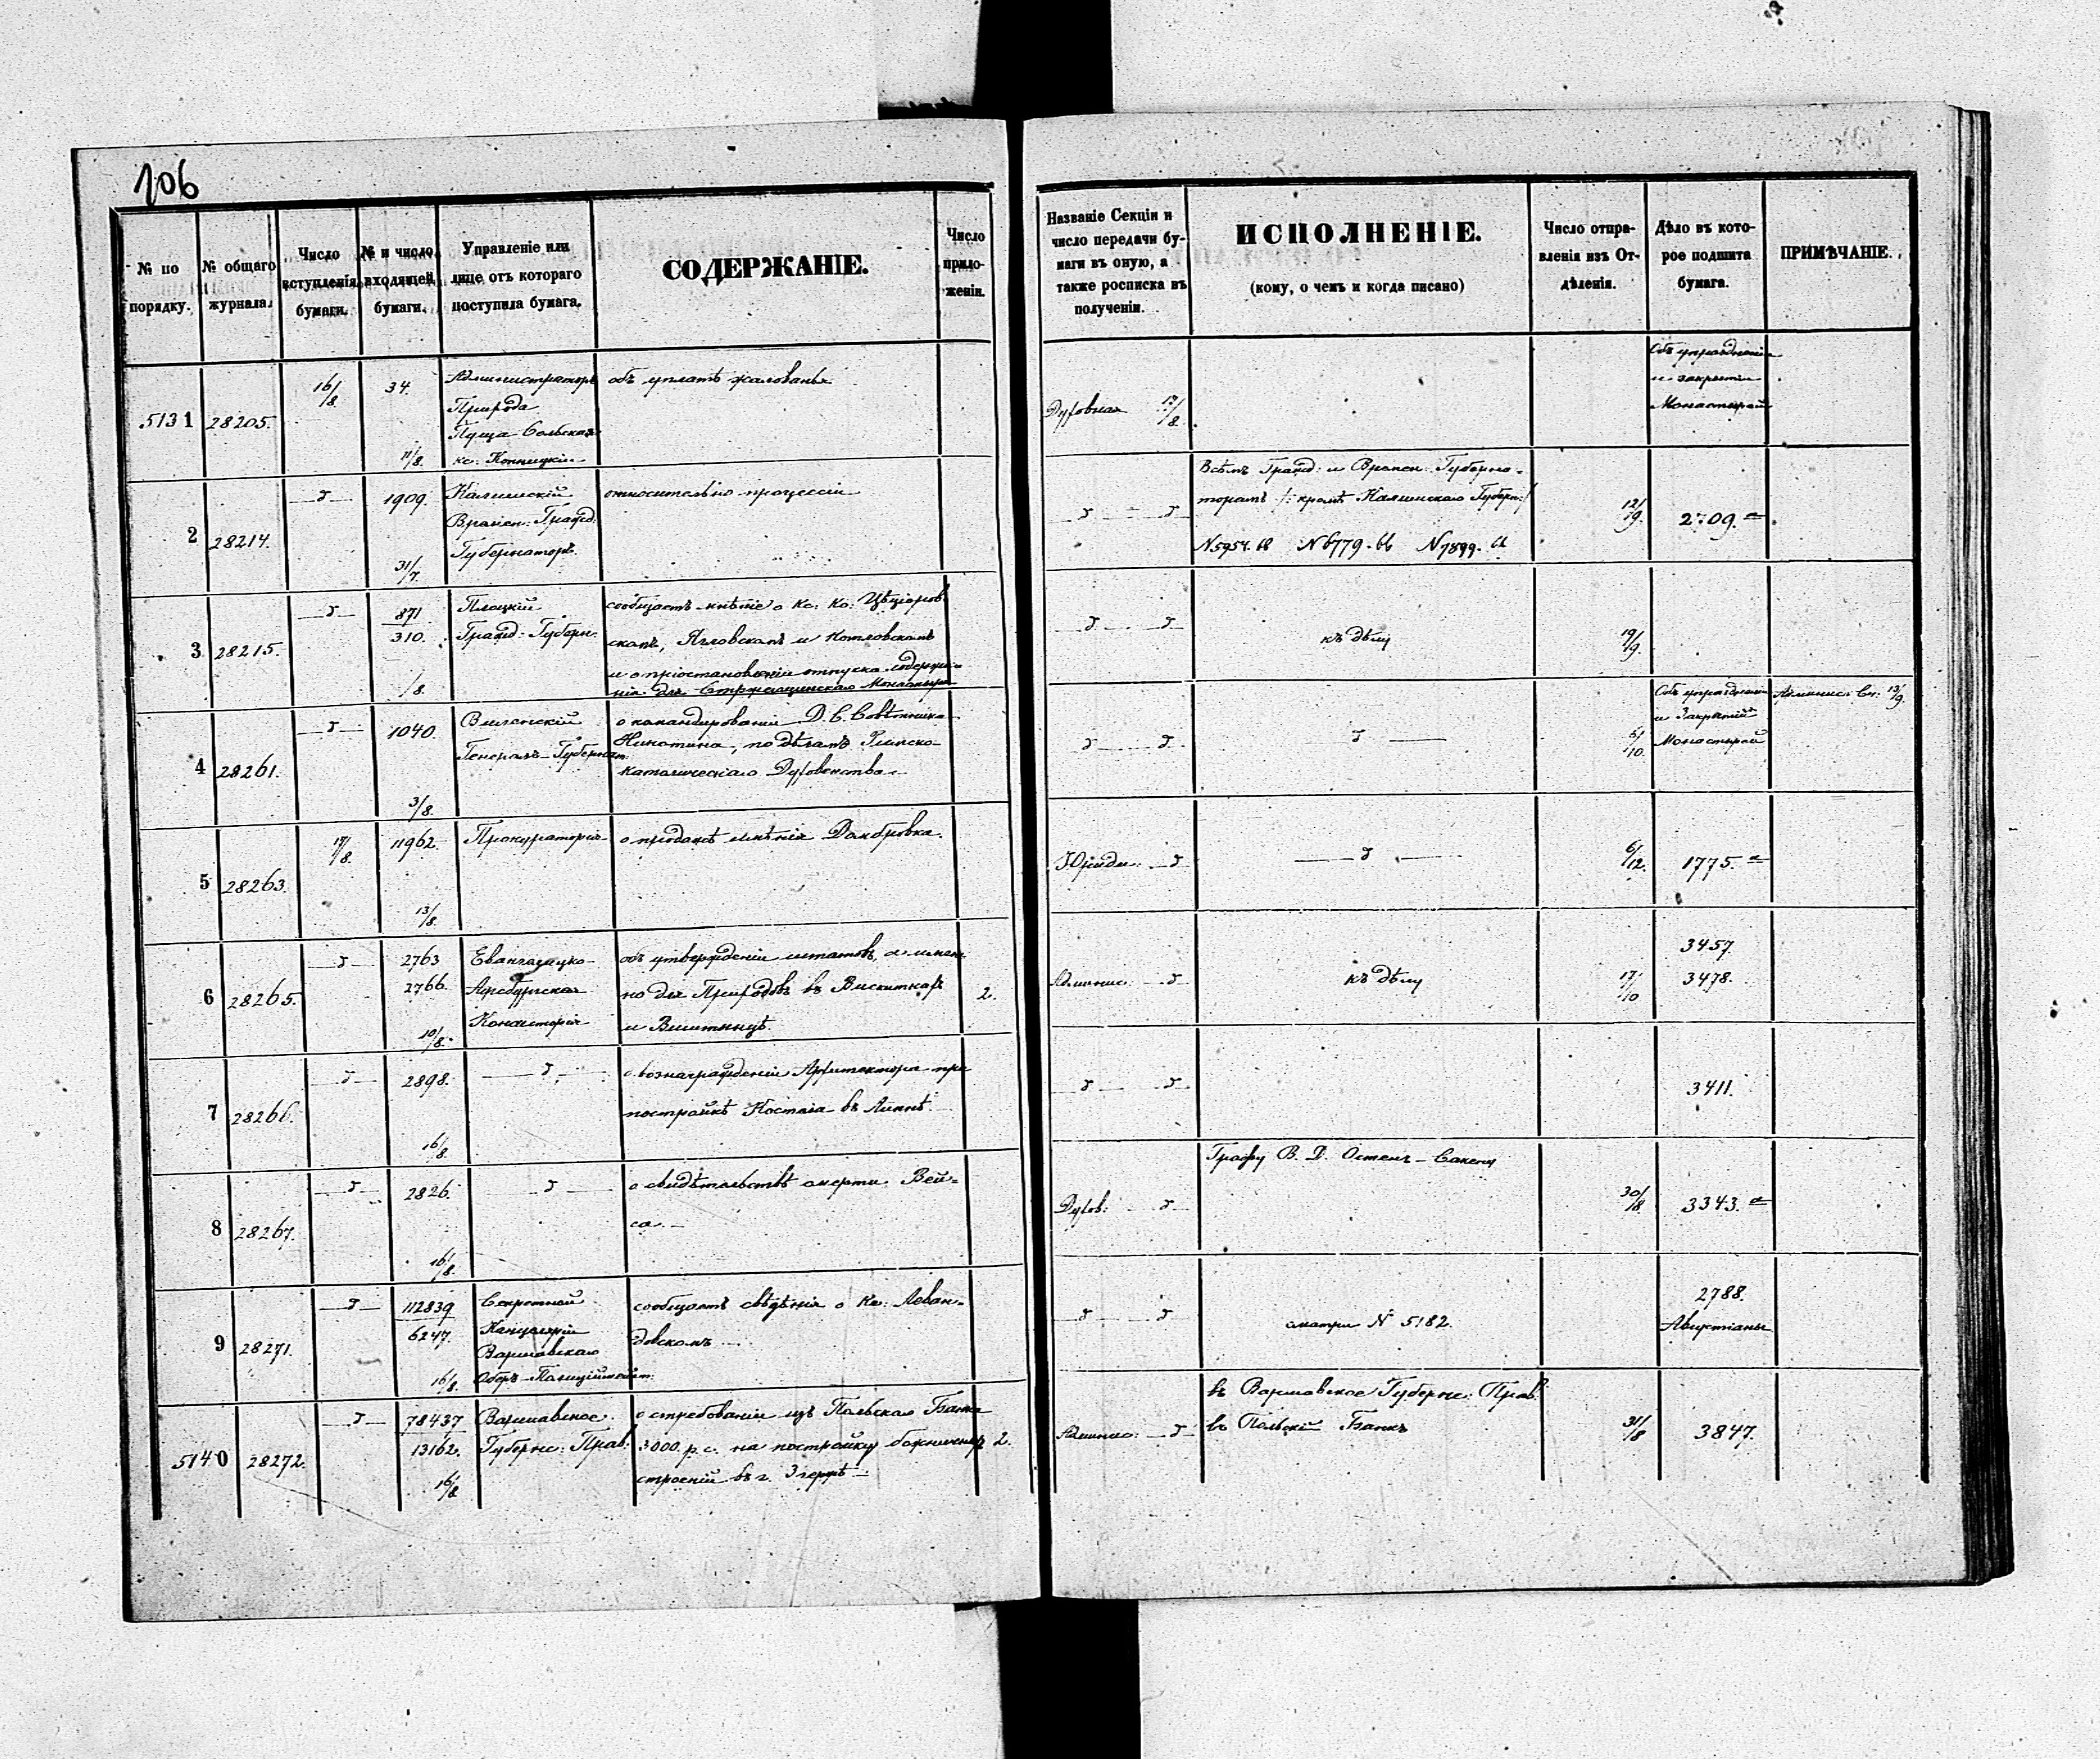 106
№ по порядку.
№ общаго журнала.
Число вступленія бумаги.
№ и число входящей бумаги.
Управленіе или лице отъ котораго поступила бумага.
СОДЕРЖАНІЕ.
Число приложеній.
Названіе Секціи и число передачи бумаги въ оную, а также росписка въ полученіи.
ИСПОЛНЕНІЕ.
(кому, о чемъ и когда писано)
Число отправленія изъ Отдѣленія.
Дѣло въ которое подшита бумага.
ПРИМѢЧАНІЕ.
5131 28205. 16/8. 34. Администраторъ объ уплатѣ жалованья
Прихода
Пуща Сольская
11/8. кс:
Духовная 17/8.
Объ упраздненіи
и закрытіи
Монастырей
2 28214. 1909. Калишскій относительно процессіи
Времен: Гражд:
31/7. Губернаторъ
Всѣмъ Гражд: и Времен: Губерна-
торамъ /: кромѣ Калишскаго Губерн:/
N 5954. 68 N 6779. 66 N 7899. 66
12/9. 2709. а
3 28215. 871 Плоцкій сообщаетъ мнѣніе о Кс: Кс:
310. Гражд: Губерн:
скомъ, и Котловскомъ
и о пріостановленіи отпуска содержа-
/8. нія для Монастыря
къ дѣлу 19/9.
4 28261. 1040. Виленскій о командированіи Д. С. Совѣтника
Генералъ-Губернат: Никотина, по дѣламъ Римско-
3/8. католическаго Духовенства.
6/10.
Объ упраздненіи
и Закрытіи
Монастырей
Админис. Сг: 13/9.
5 28263. 17/8. 11962. Прокураторія о продажѣ имѣнія Домбровка.
13/8.
Юриди: 6/12. 1775. а
6 28265. 2763 Евангелицко- объ утвержденіи штатовъ, а имен-
2766. Аугсбургская но для Приходовъ въ Вискиткахъ 2.
10/8. Консисторія и Виштынцѣ.
Админис: къ дѣлу 17/10
3457.
3478.
7 28266. 2898. о вознагражденіи Архитектора при
постройкѣ Костела въ Липнѣ.
16/8.
3411.
8 28267. 2826. о свидѣтельствѣ смерти Вей-
са.
16/8.
Духов: Графу В. Д. Остенъ-Сакену
30/8 3343. а
9 28271. 112839 Секретной сообщаетъ свѣдѣнія о Кс: Леван-
6247. Канцеляріи довскомъ
Варшавскаго
16/8. Оберъ-Полиціймейст:
смотри N 5182.
2788.
Августіаны
5140 28272. 78437 Варшавское о стребованіи изъ Польскаго Банка
13162. Губернс: Прав: 3000. р. с. на постройку 2.
16/8 строеній въ г. Згержѣ
Админис:
въ Варшавское Губернс: Прав:
въ Польскій Банкъ
31/8 3847.